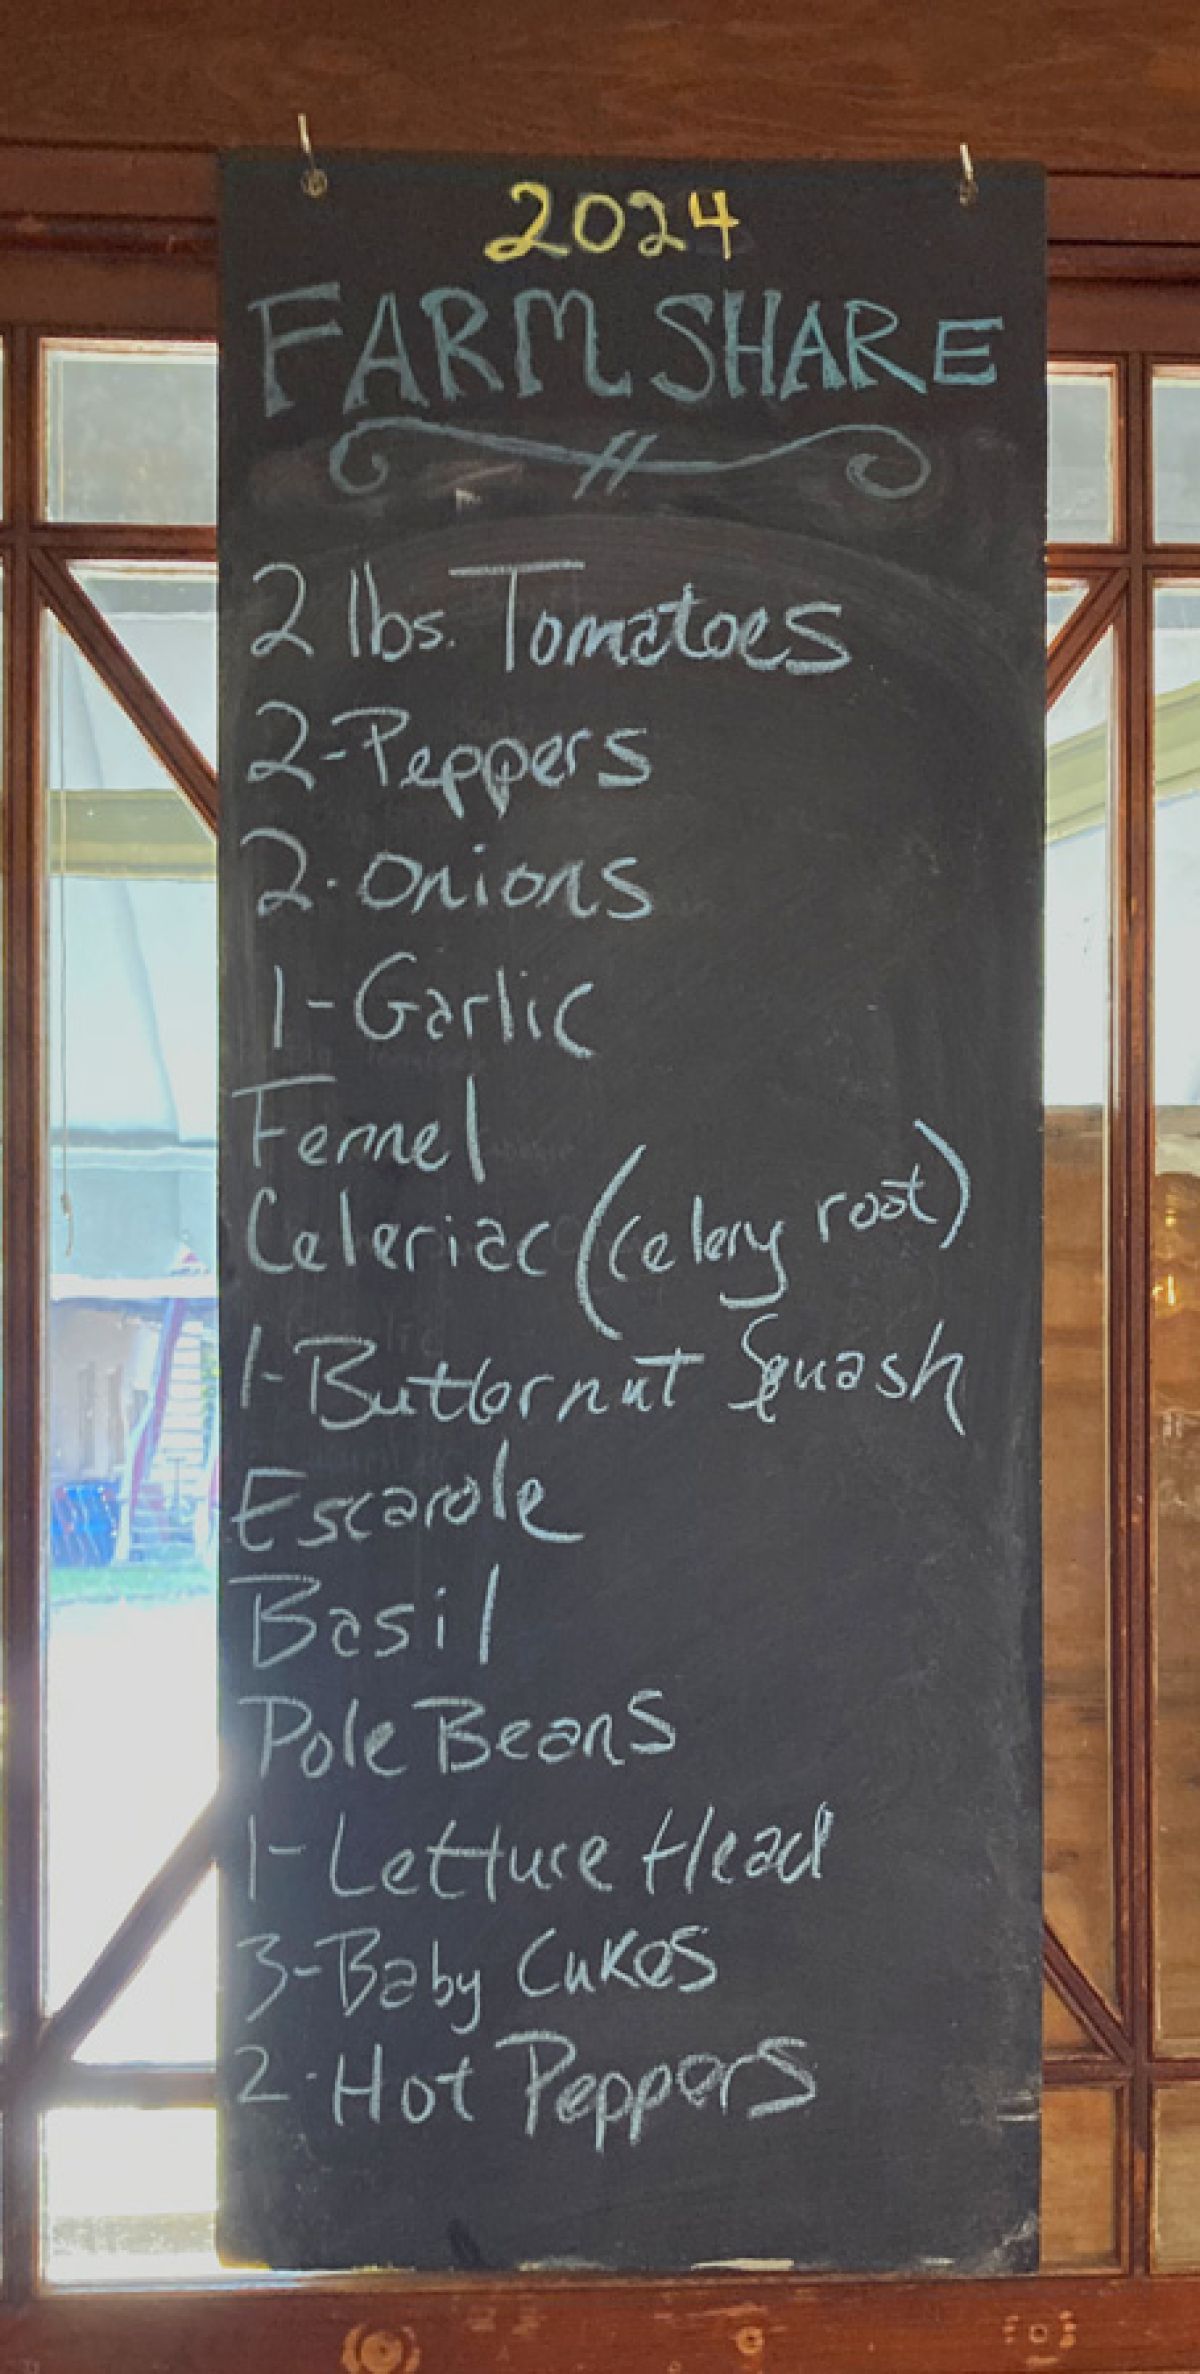 2024
FARM SHARE
2 lbs. Tomatoes
2-Peppers
2-Onions
1-Garlic
Fennel
Celeriac (celery root)
1-Butternut Squash
Escarole
Basil
Pole Beans
1-Lettuce Head
3-Baby Cukes
2-Hot Peppers